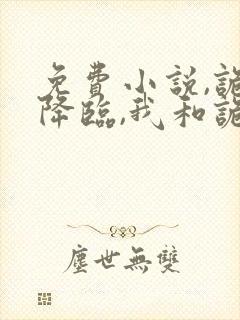 免費小説,詭
降臨,我和詭
塵世無雙